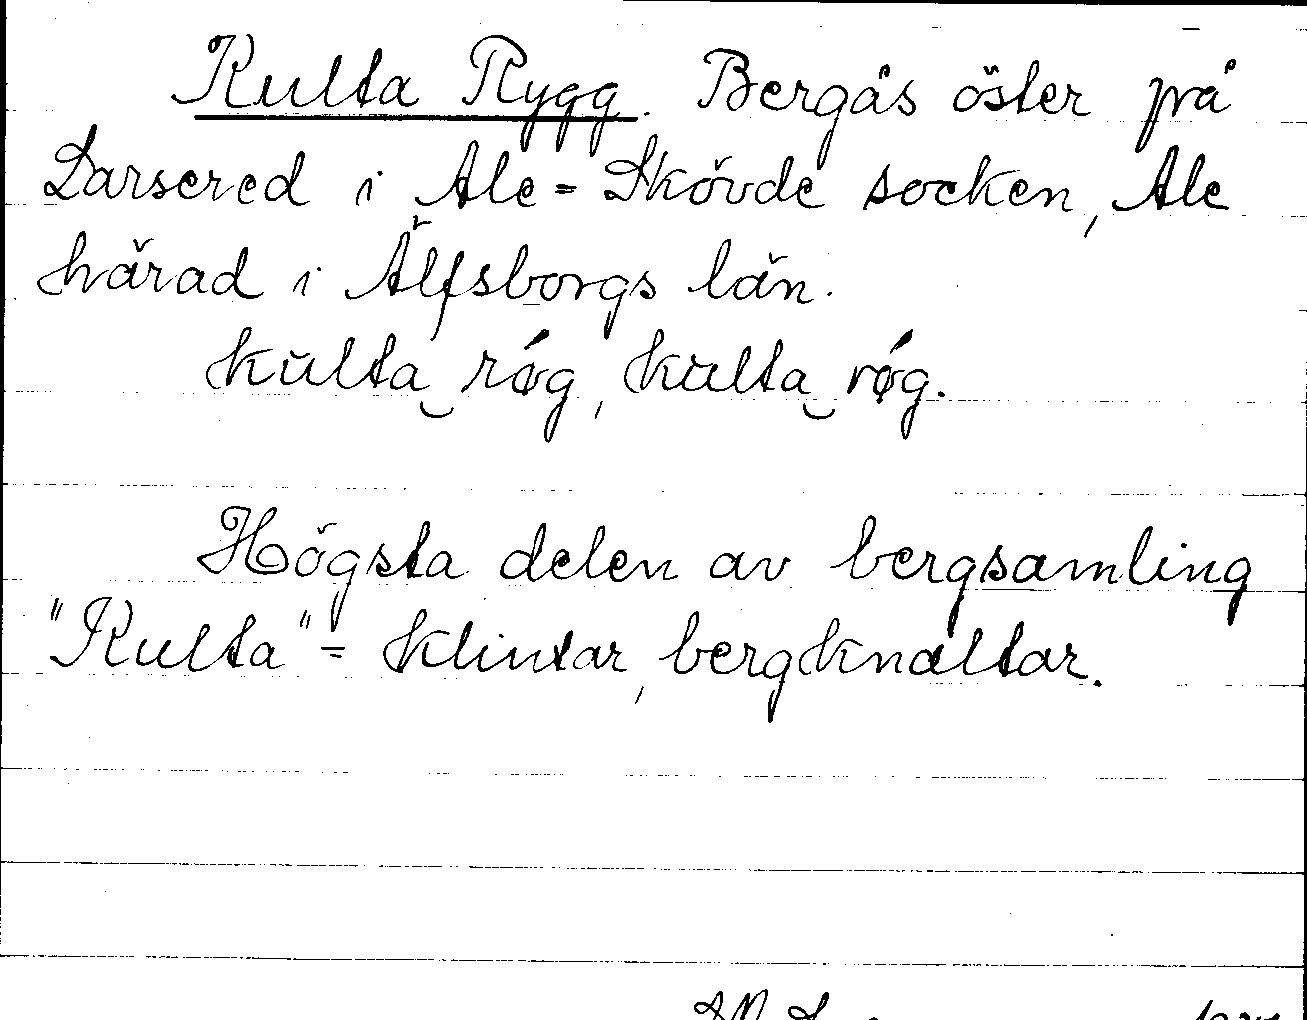 Kulta Rygg. Bergås öster på
Darsered i Ale-Skövde socken, Ale
härad i Älfsborgs län.
kŭlta‿rǿg, kŭlta‿rǿg.
Högsta delen av bergsamling
"Kulta" = klintar, bergknaltar.